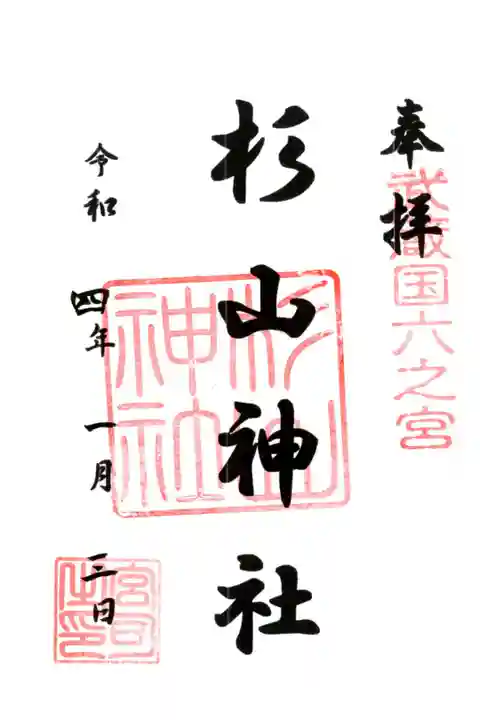 奉拝
武蔵国六之宮
杉山神社
杉山神社
令和四年一月三日
宮司之印